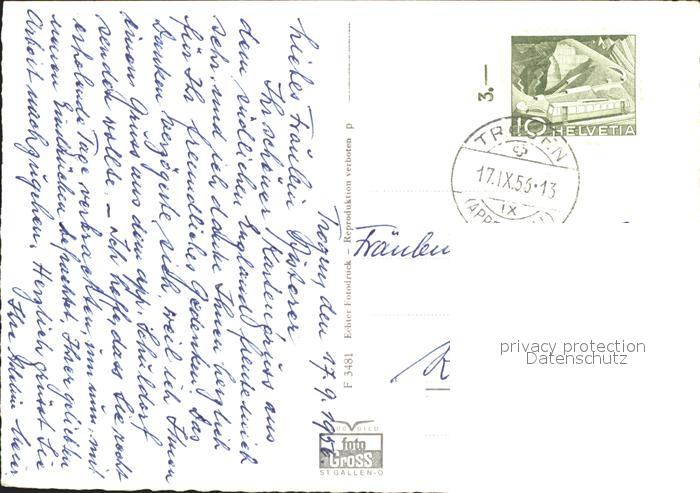 Trogen, den 17.9.1956
Liebes Fräulein
Ihr schöner Kartengruss aus
dem südlichen England freute mich
sehr und ich danke Ihnen herzlich
für Ihr freundliches Gedenken. Das
Danken verzögerte sich, weil ich Ihnen
einen Gruss aus dem app. Schuldorf
senden wollte. – Ich hoffe, dass Sie recht
erholende Tage verbrachten, um nun, mit
neuen Eindrücken befrachtet, Ihrer geliebten
Arbeit nachzugehen. Herzlich grüsst Sie
Ihr
F 3481 Echter Fotodruck – Reproduktion verboten p
3.–
10 HELVETIA
TROGEN
17.IX.56·13
IX
(APP
Fräulein
privacy protection
Datenschutz
foto
Gross
ST. GALLEN-O